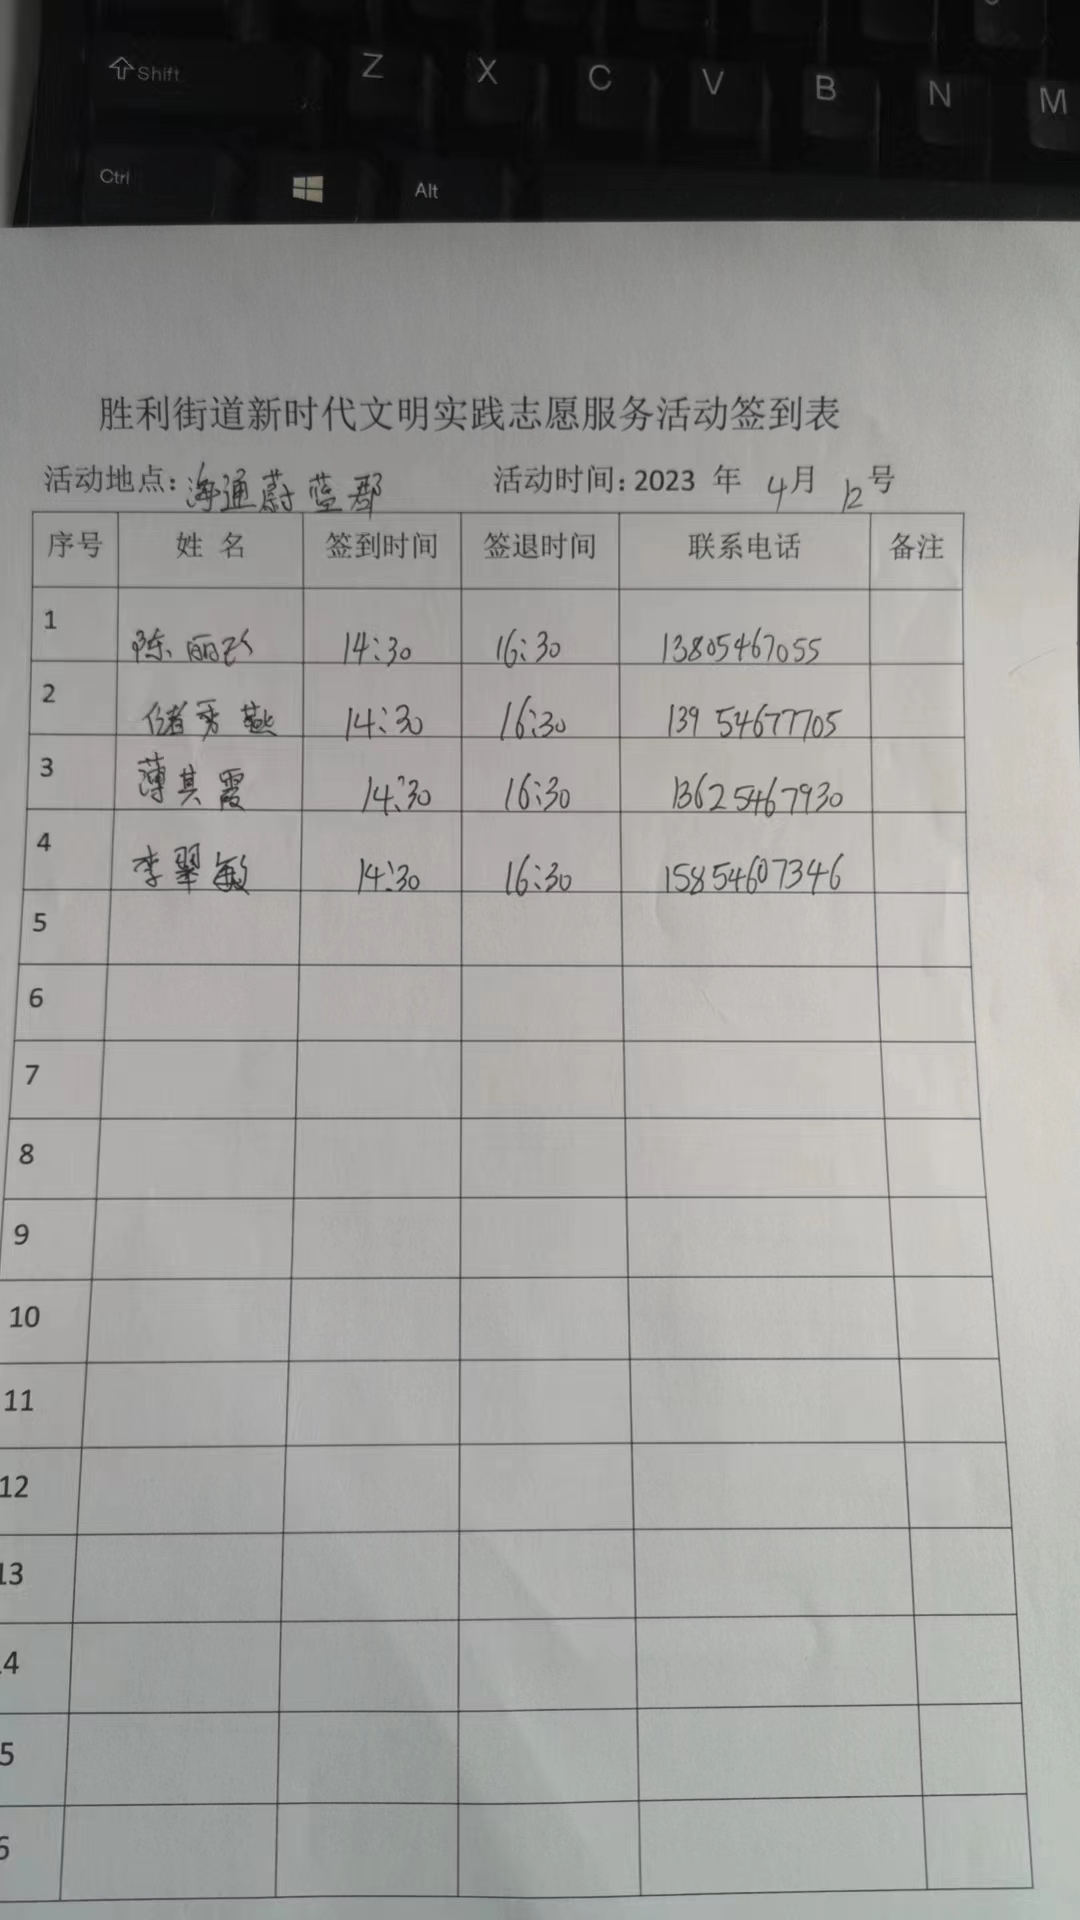 Shift Z X C V B N M
Ctrl Alt
胜利街道新时代文明实践志愿服务活动签到表
活动地点: 海通蔚蓝郡 活动时间: 2023 年 4月 12号
序号 姓 名 签到时间 签退时间 联系电话 备注
1 陈丽 14:30 16:30 13805467055
2 储秀燕 14:30 16:30 139 54677705
3 薄其霞 14:30 16:30 13625467930
4 李翠敏 14:30 16:30 15854607346
5
6
7
8
9
10
11
12
13
4
5
6